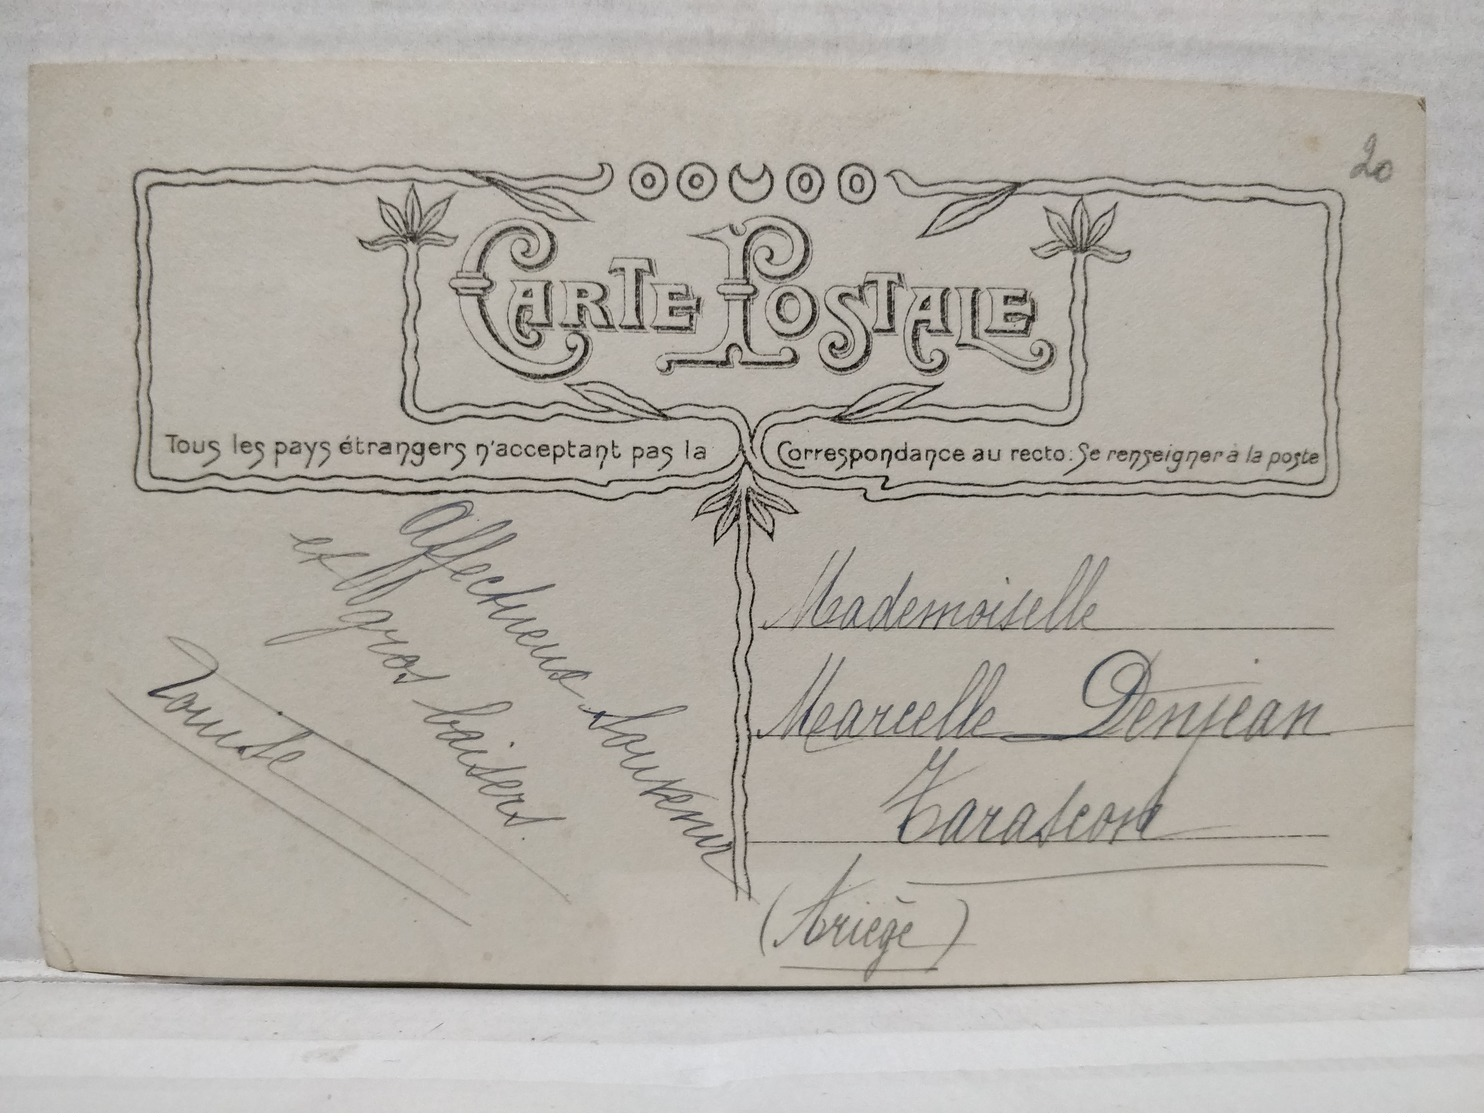 20
CARTE POSTALE
Tous les pays étrangers n'acceptant pas la Correspondance au recto: Se renseigner à la poste
Affectueux souvenir
et gros baisers.
Louise
Mademoiselle
Marcelle Denjean
Tarascon
(Ariège)